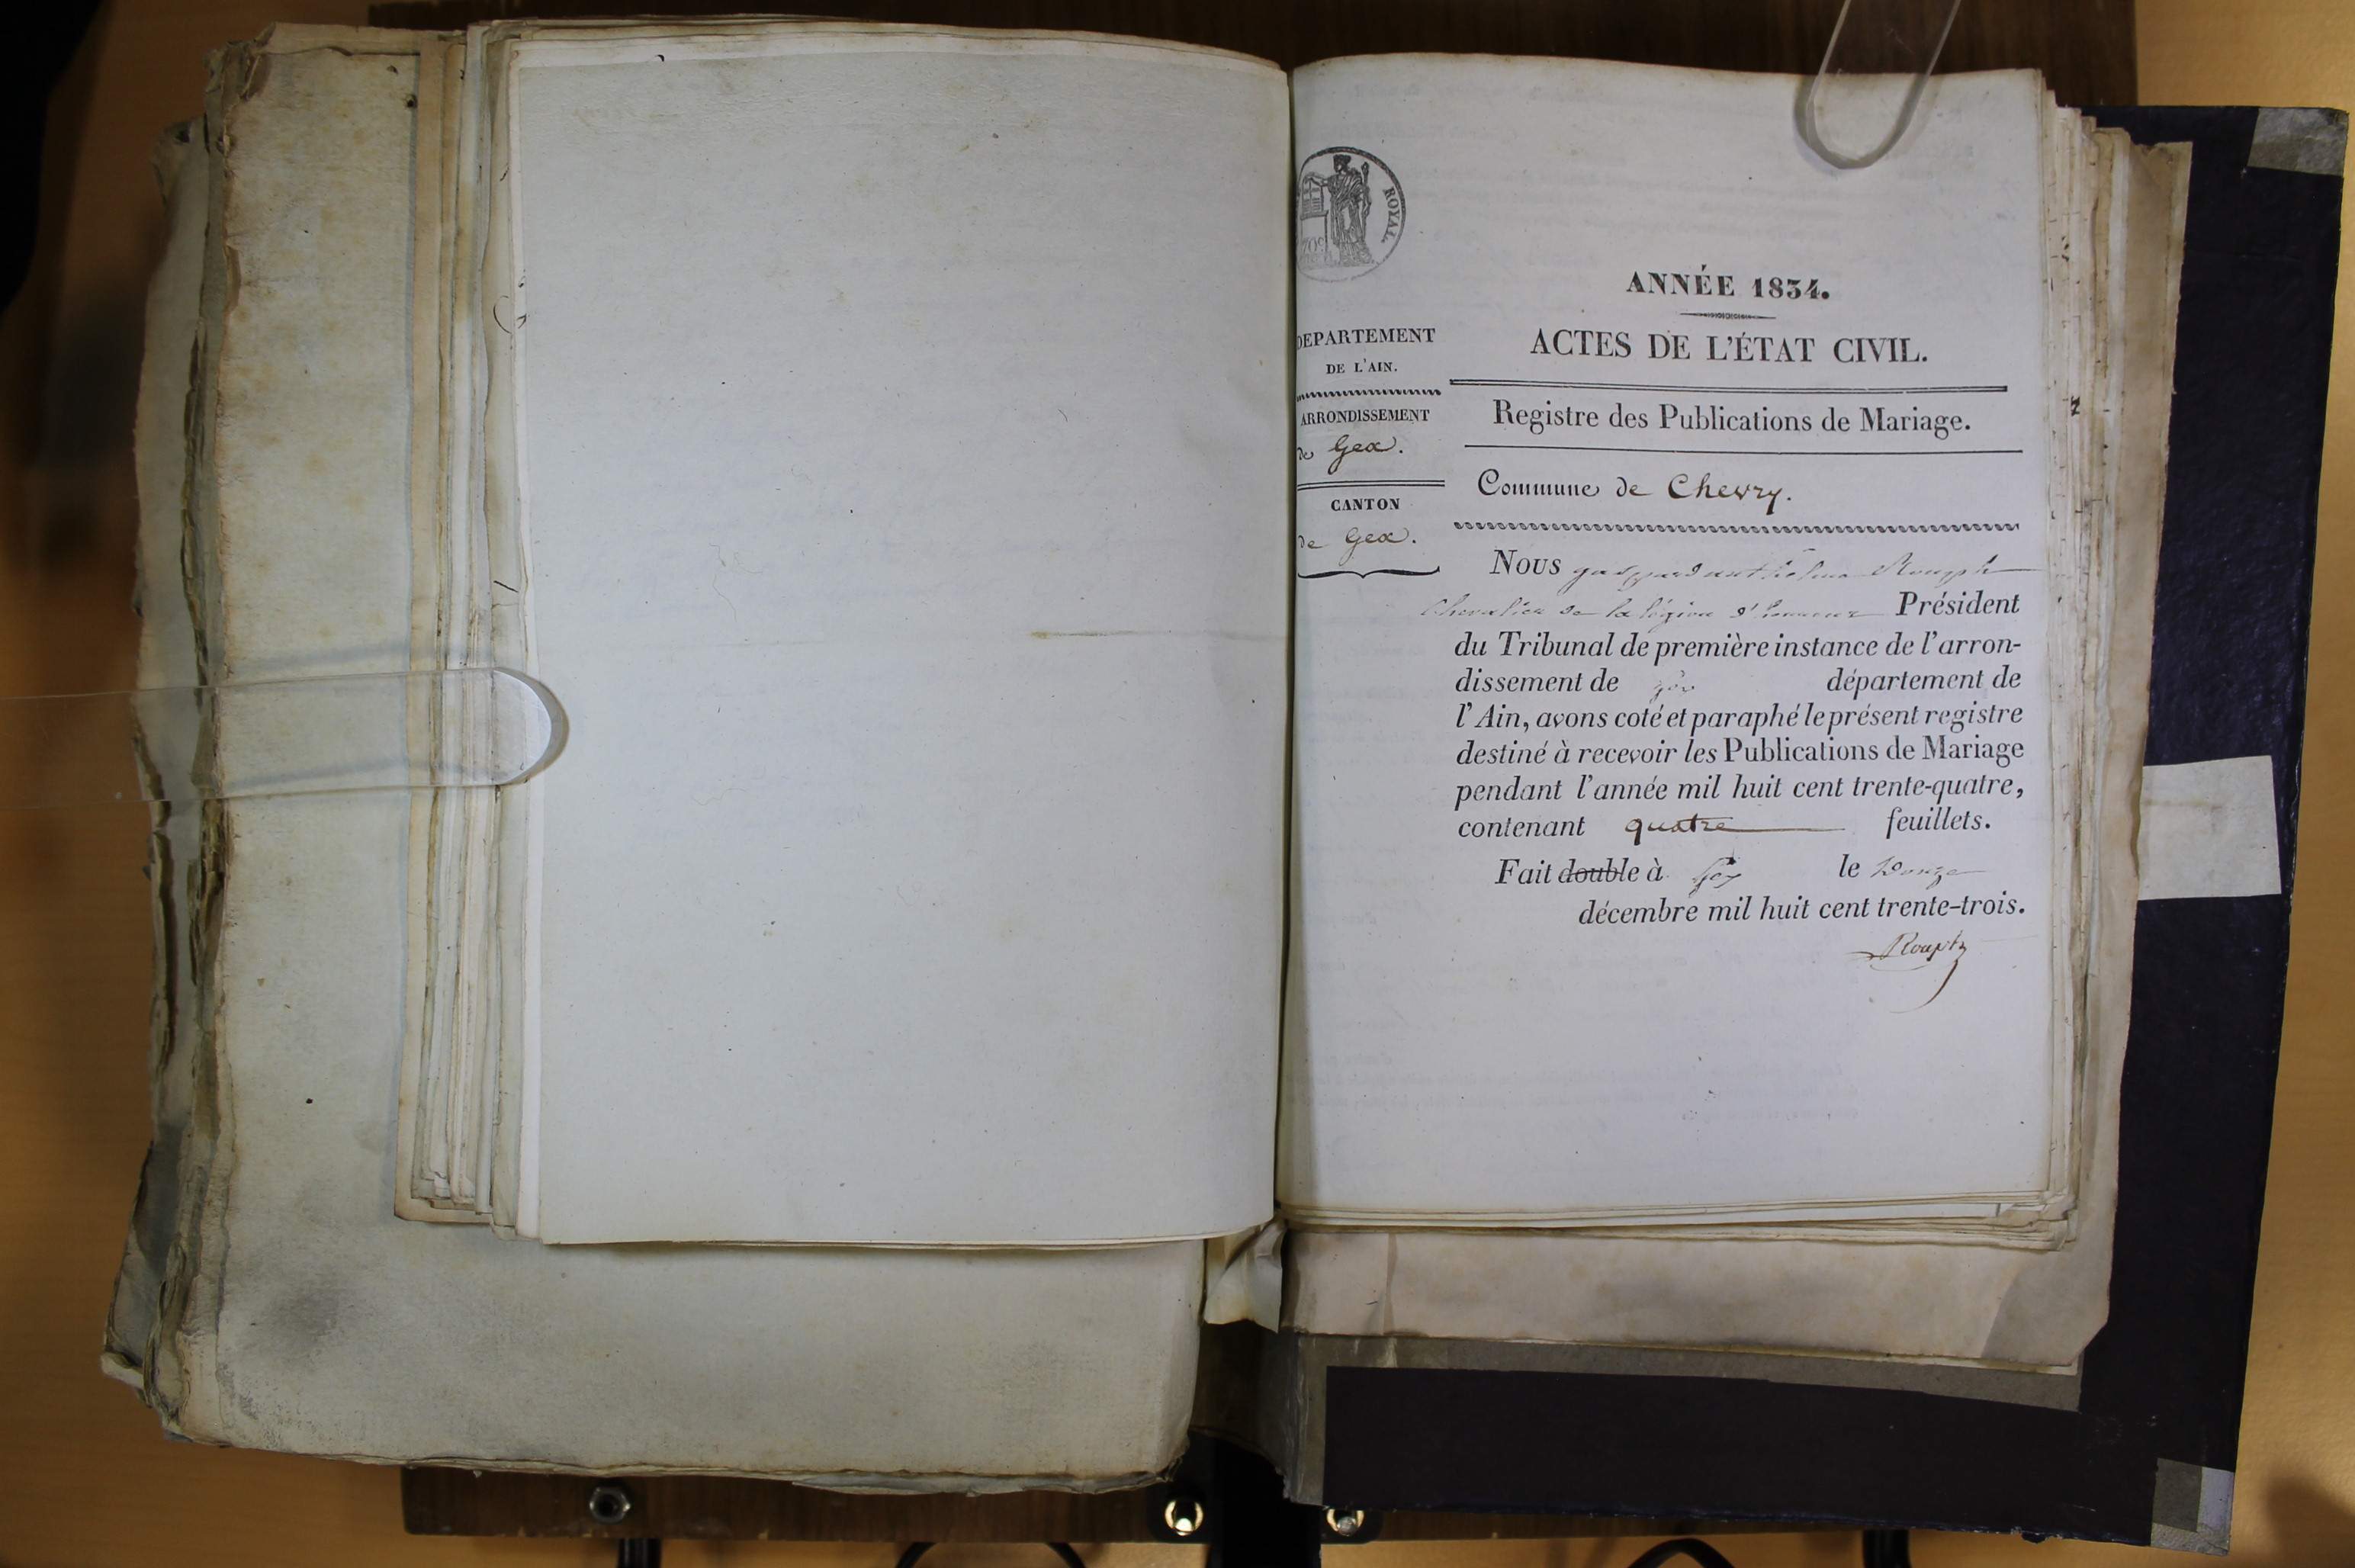 ROYAL.
ANNÉE 1834.
ACTES DE L'ÉTAT CIVIL.
DEPARTEMENT
DE L'AIN.
ARRONDISSEMENT
de Gex.
CANTON
de Gex.
Registre des Publications de Mariage.
Commune de Chevry.
Nous gaspard anthelme Rouph
Chevalier de la légion d'honneur Président
du Tribunal de première instance de l'arron-
dissement de gex département de
l'Ain, avons coté et paraphé le présent registre
destiné à recevoir les Publications de Mariage
pendant l'année mil huit cent trente-quatre,
contenant quatre feuillets.
Fait double à Gex le Douze
décembre mil huit cent trente-trois.
Rouph